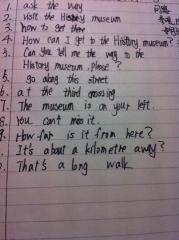 1. ask the way
2. visit the History museum
3. how to get there
4. How can I get to the History museum?
5. Can you tell me the way to the
History museum, please?
5. go along this street
6. at the third crossing
7. The museum is on your left.
8. You can't miss it.
9. How far is it from here?
It's about a kilometre away?
That's a long walk